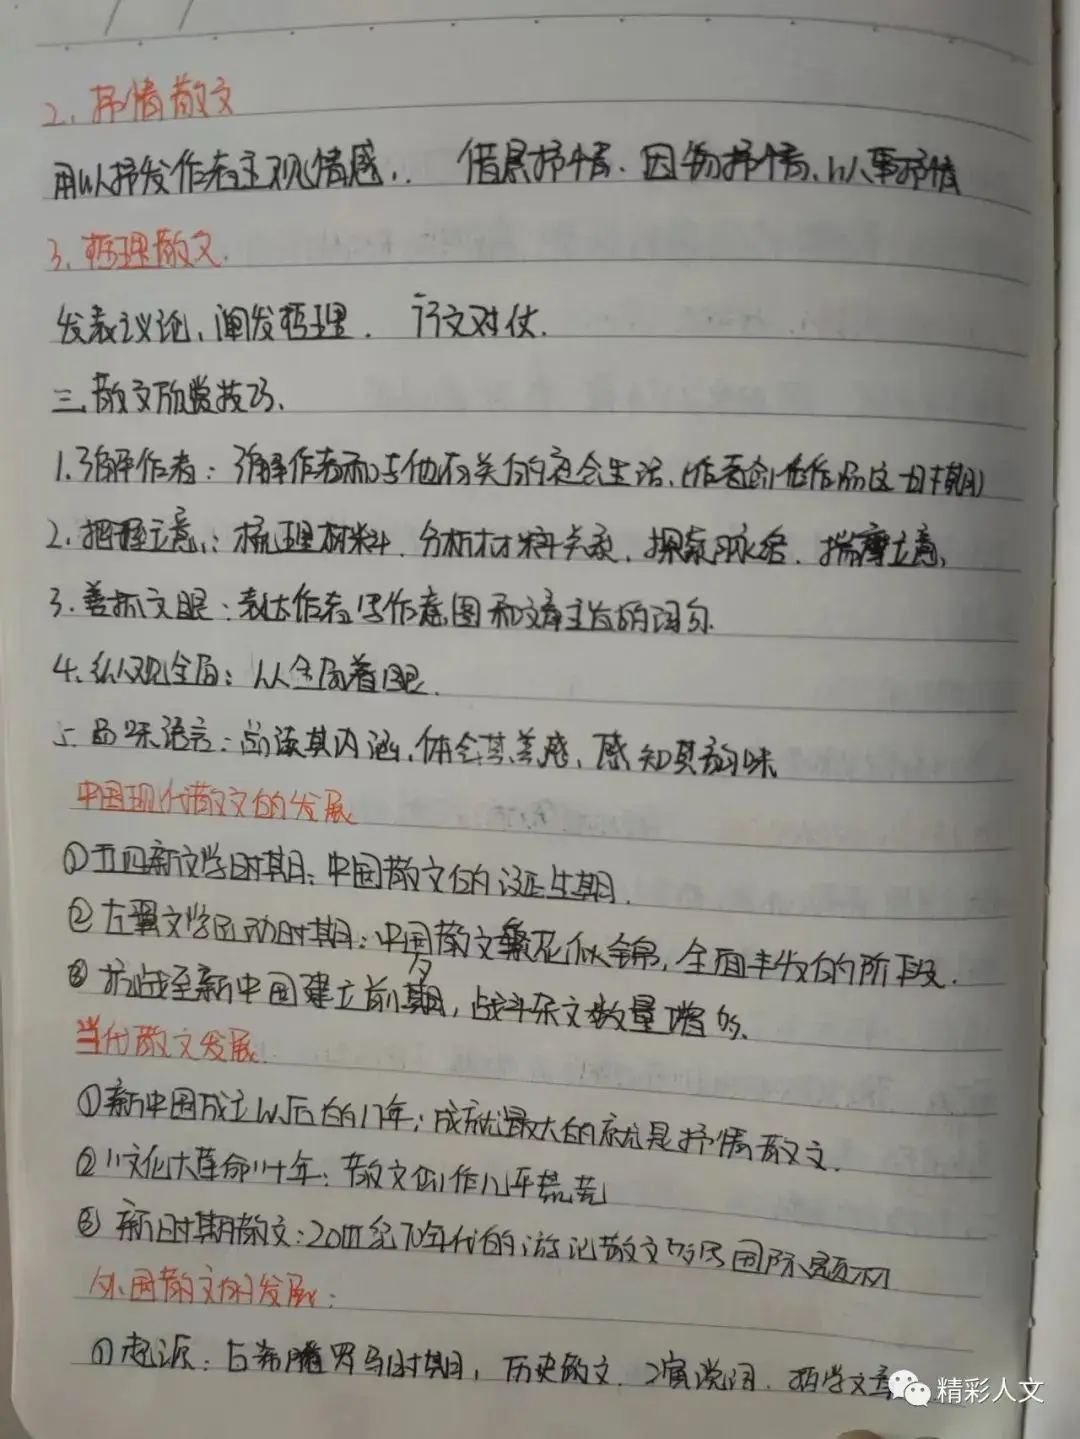 2. 抒情散文
用以抒发作者主观情感. 借景抒情、因物抒情、以事抒情
3. 哲理散文.
发表议论、阐发哲理. 行文对仗.
三. 散文欣赏技巧.
1. 了解作者：了解作者和与他有关的社会生活.(作者创作作品这一时期)
2. 把握立意：梳理材料. 分析材料关系. 探索脉络. 揣摩立意.
3. 善抓文眼：表达作者写作意图和文章主旨的词句.
4. 纵观全局：从全局着眼.
5. 品味语言：阅读其内涵, 体会其美感, 感知其韵味
中国现代散文的发展
①五四新文学时期：中国散文的诞生期.
②左翼文学运动时期：中国散文繁花似锦, 全面丰收的阶段.
③抗战至新中国建立前夕期, 战斗杂文数量增多.
当代散文发展.
①新中国成立以后的17年：成就最大的就是抒情散文.
②"文化大革命"十年：散文创作几乎荒芜
③新时期散文：20世纪70年代的游记散文 国际题材
外国散文的发展：
①起源：古希腊罗马时期, 历史散文. 演说词. 哲学文章
精彩人文